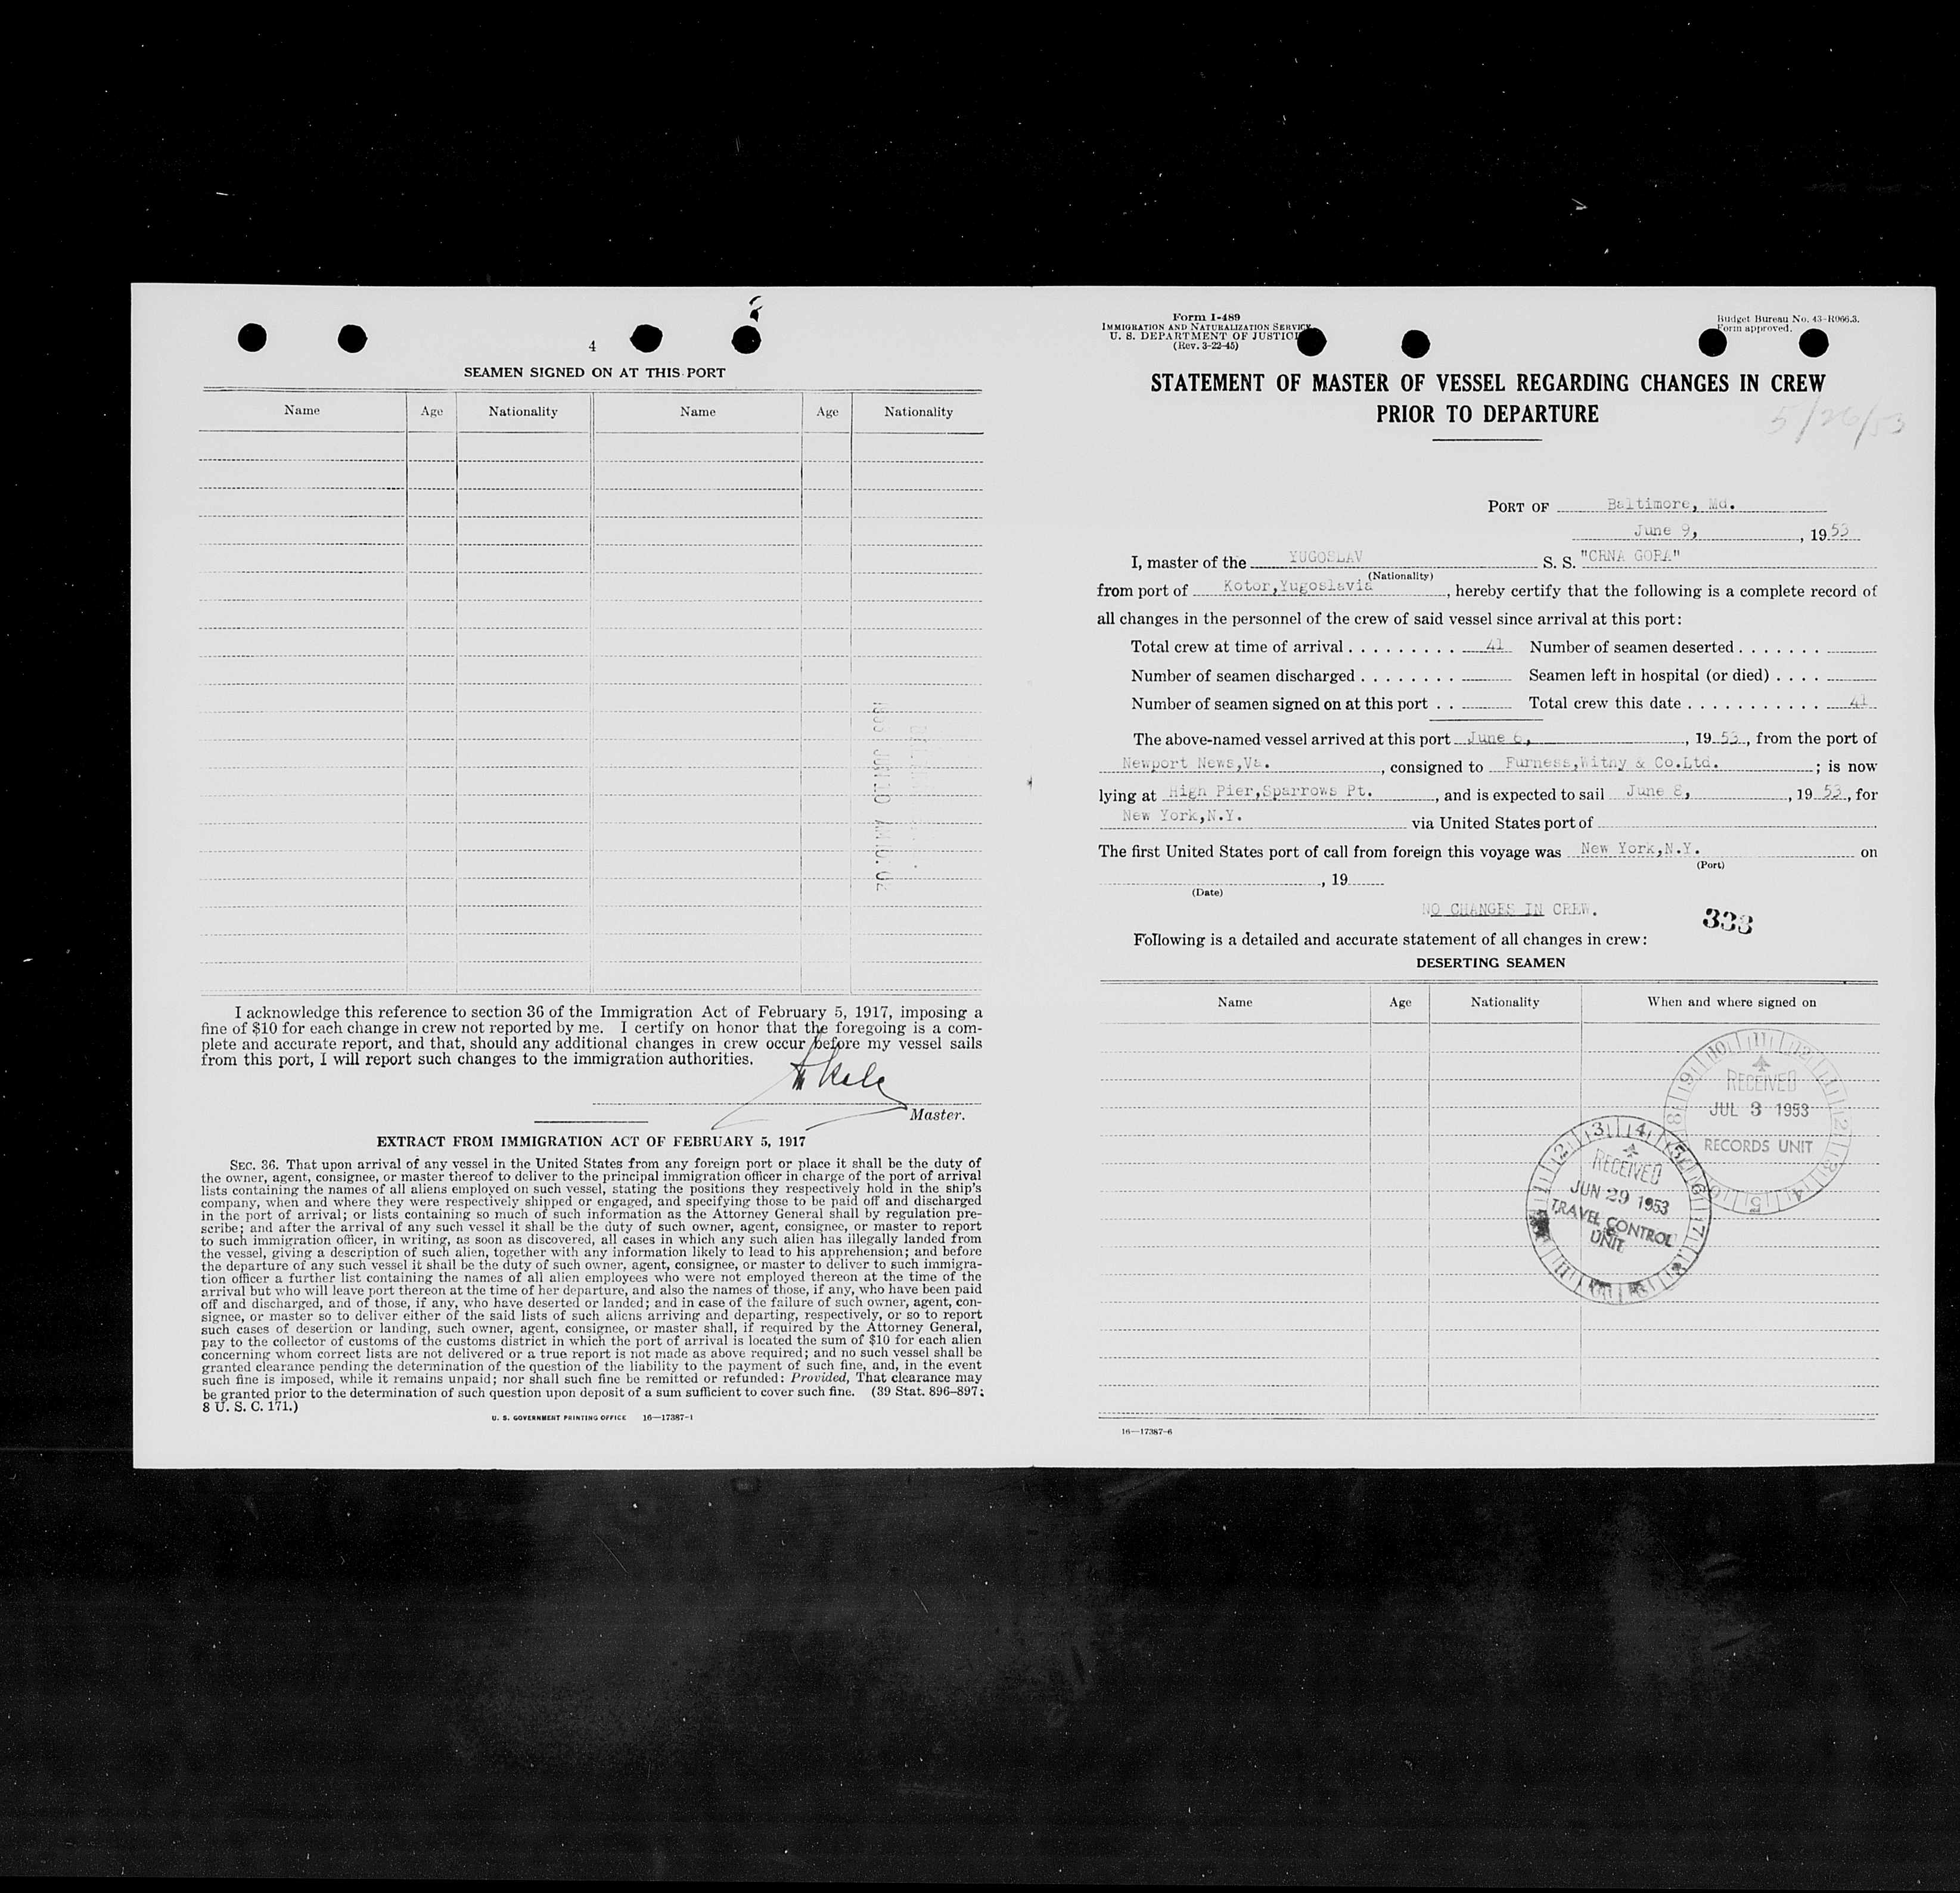 4
SEAMEN SIGNED ON AT THIS PORT
Name Age Nationality Name Age Nationality
I acknowledge this reference to section 36 of the Immigration Act of February 5, 1917, imposing a
fine of $10 for each change in crew not reported by me. I certify on honor that the foregoing is a com-
plete and accurate report, and that, should any additional changes in crew occur before my vessel sails
from this port, I will report such changes to the immigration authorities.
Master.
EXTRACT FROM IMMIGRATION ACT OF FEBRUARY 5, 1917
SEC. 36. That upon arrival of any vessel in the United States from any foreign port or place it shall be the duty of
the owner, agent, consignee, or master thereof to deliver to the principal immigration officer in charge of the port of arrival
lists containing the names of all aliens employed on such vessel, stating the positions they respectively hold in the ship's
company, when and where they were respectively shipped or engaged, and specifying those to be paid off and discharged
in the port of arrival; or lists containing so much of such information as the Attorney General shall by regulation pre-
scribe; and after the arrival of any such vessel it shall be the duty of such owner, agent, consignee, or master to report
to such immigration officer, in writing, as soon as discovered, all cases in which any such alien has illegally landed from
the vessel, giving a description of such alien, together with any information likely to lead to his apprehension; and before
the departure of any such vessel it shall be the duty of such owner, agent, consignee, or master to deliver to such immigra-
tion officer a further list containing the names of all alien employees who were not employed thereon at the time of the
arrival but who will leave port thereon at the time of her departure, and also the names of those, if any, who have been paid
off and discharged, and of those, if any, who have deserted or landed; and in case of the failure of such owner, agent, con-
signee, or master so to deliver either of the said lists of such aliens arriving and departing, respectively, or so to report
such cases of desertion or landing, such owner, agent, consignee, or master shall, if required by the Attorney General,
pay to the collector of customs of the customs district in which the port of arrival is located the sum of $10 for each alien
concerning whom correct lists are not delivered or a true report is not made as above required; and no such vessel shall be
granted clearance pending the determination of the question of the liability to the payment of such fine, and, in the event
such fine is imposed, while it remains unpaid; nor shall such fine be remitted or refunded: Provided, That clearance may
be granted prior to the determination of such question upon deposit of a sum sufficient to cover such fine. (39 Stat. 896–897;
8 U. S. C. 171.)
U. S. GOVERNMENT PRINTING OFFICE 16—17387-1
Form I-489
IMMIGRATION AND NATURALIZATION SERVICE
U. S. DEPARTMENT OF JUSTICE
(Rev. 3-22-45)
Budget Bureau No. 43-R066.3.
Form approved.
STATEMENT OF MASTER OF VESSEL REGARDING CHANGES IN CREW
PRIOR TO DEPARTURE
5/26/53
PORT OF Baltimore, Md.
June 9, , 1953
I, master of the YUGOSLAV S. S. "CRNA GORA"
(Nationality)
from port of Kotor,Yugoslavia , hereby certify that the following is a complete record of
all changes in the personnel of the crew of said vessel since arrival at this port:
Total crew at time of arrival . . . . . . . . . 41 Number of seamen deserted . . . . . . .
Number of seamen discharged . . . . . . . . Seamen left in hospital (or died) . . . .
Number of seamen signed on at this port . . Total crew this date . . . . . . . . . . . 41
The above-named vessel arrived at this port June 6, , 1953, from the port of
Newport News,Va. , consigned to Furness,Witny & Co.Ltd. ; is now
lying at High Pier,Sparrows Pt. , and is expected to sail June 8, , 1953, for
New York,N.Y. via United States port of
The first United States port of call from foreign this voyage was New York,N.Y. on
(Port)
, 19
(Date)
NO CHANGES IN CREW.
333
Following is a detailed and accurate statement of all changes in crew:
DESERTING SEAMEN
Name Age Nationality When and where signed on
RECEIVED
JUL 3 1953
RECORDS UNIT
RECEIVED
JUN 29 1953
TRAVEL CONTROL
UNIT
16—17387-6